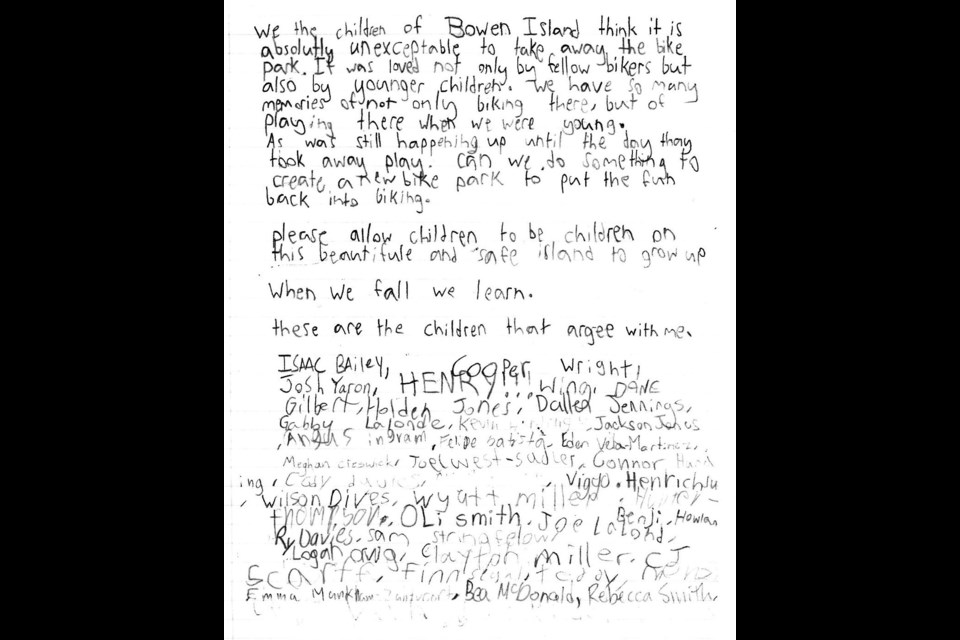 we the children of Bowen Island think it is
absolutly unexceptable to take away the bike
park. It was loved not only by fellow bikers but
also by younger children. We have so many
memories of not only biking there, but of
playing there when we were young.
As was still happening up until the day thay
took away play. Can we do something to
create a new bike park to put the fun
back into biking.
please allow children to be children on
this beautifule and safe island to grow up
When we fall we learn.
these are the children that argee with me.
ISAAC BAiley, Cooper Wright,
Josh Yaron, HENRY!!! Wing, DANE
Gilbert, Holden Jones, Dallen Jennings,
Gabby Lalonde, Kevin Jackson Johns
, Angus ingram, Felipe batista, Eden
Meghan Creswick, Joel west-sadler, Connor
ing, Cody davies, Viggo. Henrichsu
, Wilson Dives, wyatt miller, Hunter-
thompson, OLi smith, Joe Lalond, Benji. Howlan
Ry Davies. sam stringfellow,
Logan craig, Clayton miller. CJ
Scarff, Finn teddy,
Emma Bea McDonald, Rebecca Smith,